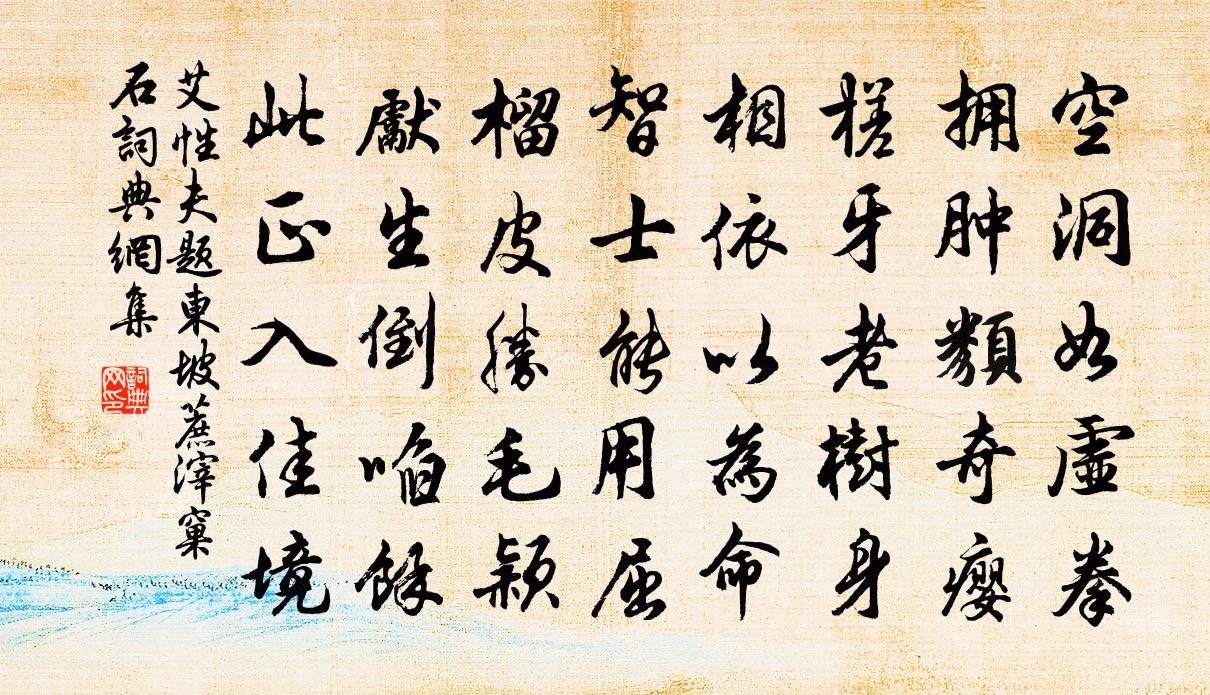 空洞如虚拳
拥肿類奇瘿
槎牙老樹身
相依以為命
智士能用屈
榴皮勝毛颖
獻生倒啗餘
此正入佳境
艾性夫題東坡蔗滓窠
石詞典網集
詞典
网印